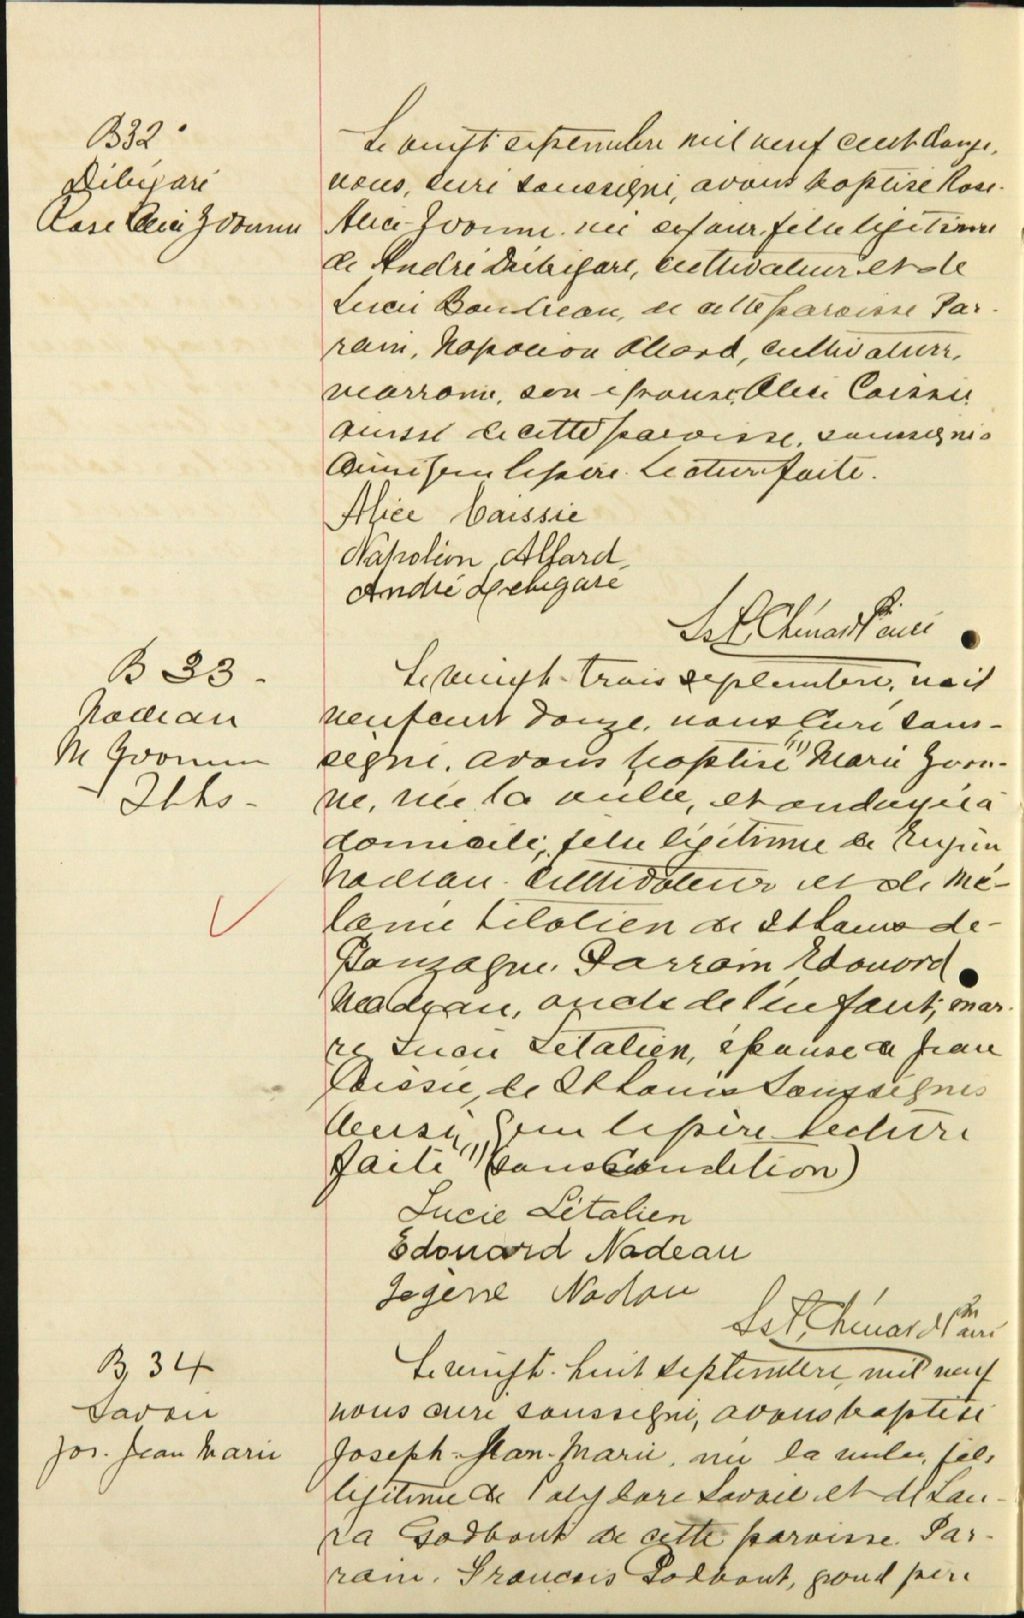 B32
Débigaré
Rose Alice Yvonne
Le vingt septembre mil neuf cent douze,
nous, curé soussigné, avons baptisé Rose-
Alice-Yvonne née ce jour fille légitime
de André Débigaré, cultivateur et de
Lucie Boudreau, de cette paroisse Par-
rain, Napoléon Allard, cultivateur,
marraine, son épouse, Alice Caissie
aussi de cette paroisse, soussignés
ainsi que le père. Lecture faite.
Alice Caissie
Napoléon Allard
André Debigaré
Chénard Ptre curé
B 33 -
Nadeau
M Yvonne
Le vingt-trois septembre, mil
neuf cent douze, nous Curé sous-
signé, avons baptisé (1) Marie Yvon-
ne, née la veille, et ondoyée à
domicile, fille légitime de Eugène
Nadeau cultivateur et de Mé-
lanie Létalien de St Louis de-
Gonzague. Parrain Edouard
Nadeau, oncle de l'enfant; mar-
re Lucie Létalien, épouse de Jean
Caissie, de St Louis Soussignés
ainsi que le père lecture
faite (1) (sous Condition)
Lucie Létalien
Edouard Nadeau
Jogène Nadau
Chénard Ptre curé
B 34
Savoie
Jos. Jean Marie
Le vingt-huit septembre, mil neuf
nous curé soussigné, avons baptisé
Joseph-Jean-Marie, né la veille, fils
légitime de Polycare Savoie et de Lau-
ra Godbout de cette paroisse. Par-
rain. François Godbout, grand père